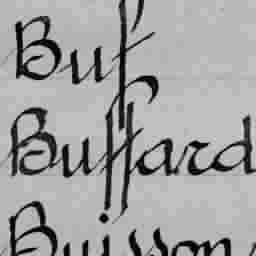 Buf
Buffard
Buisson